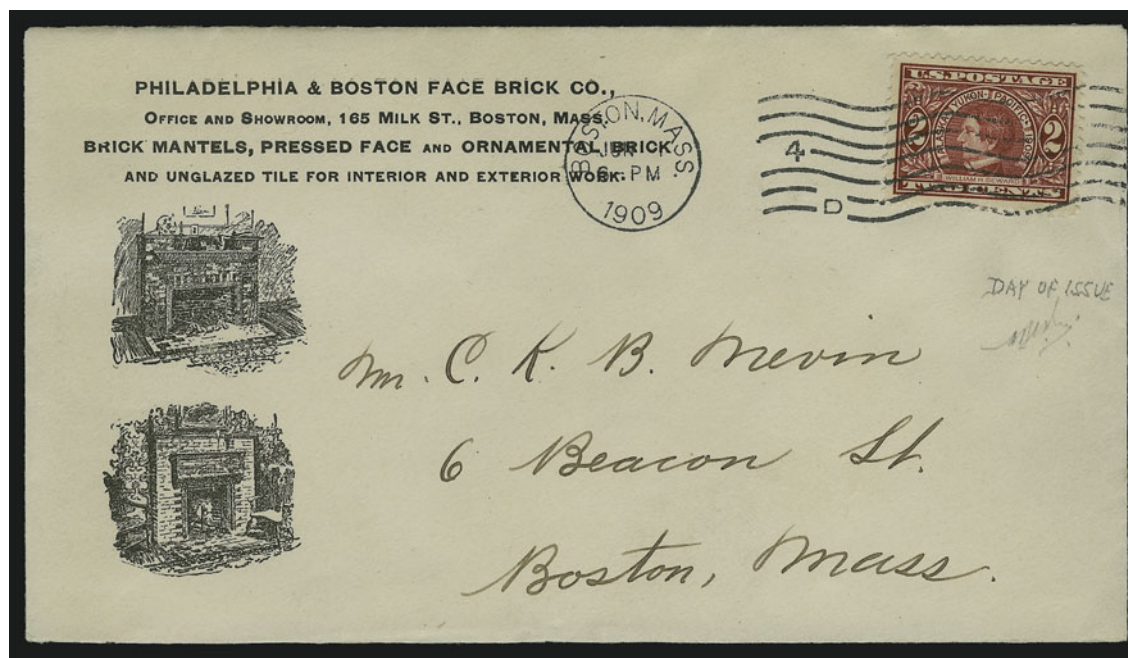 PHILADELPHIA & BOSTON FACE BRICK CO.,
OFFICE AND SHOWROOM, 165 MILK ST., BOSTON, MASS.
BRICK MANTELS, PRESSED FACE AND ORNAMENTAL BRICK
AND UNGLAZED TILE FOR INTERIOR AND EXTERIOR WORK.
BOSTON, MASS.
JUN 1
6 - PM
1909
4
D
U.S. POSTAGE
ALASKA-YUKON-PACIFIC 1909
2 2
WILLIAM H. SEWARD
TWO CENTS
DAY OF ISSUE
Mr. C. K. B. Nevin
6 Beacon St.
Boston, Mass.